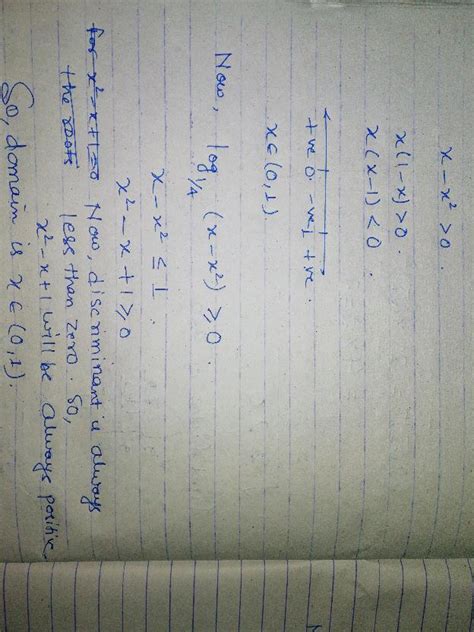 x - x² > 0.
x(1-x) > 0.
x(x-1) < 0.
+ve 0. -ve 1 +ve.
x ∈ (0,1)
Now, log_{1/4} (x - x²) ≥ 0.
x - x² ≤ 1.
x² - x + 1 ≥ 0
for x² - x + 1 = 0 Now, discriminant is always
the roots less than zero. So,
x² - x + 1 will be always positive.
So, domain is x ∈ (0,1).